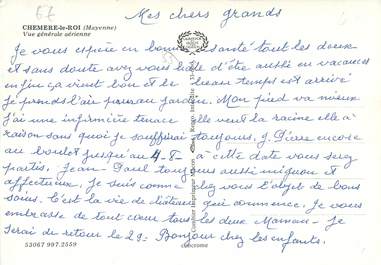 E7
Mes chers grands
CHEMERE-le-ROI (Mayenne)
Vue générale aérienne
Je vous espère en bonne santé tout les deux
et sans doute avez vous hâte d'être aussi en vacances
enfin ça vient bon et le beau temps est arrivé
je prends l'air au jardin. Mon pied va mieux
j'ai une infirmière tenace elle veut la racine elle a
raison sans quoi je souffrirai toujours. J. Pierre encore
au boulot jusqu'au 4-8- à cette date vous serez
partis. Jean-Paul toujours aussi mignon et
affectueux. Je suis comme chez vous l'objet de bons
soins. C'est la vie de château qui commence. Je vous
embrasse de tout cœur tous les deux Maman - Je
serai de retour le 29. Bonjour chez les enfants.
53067 997.2559